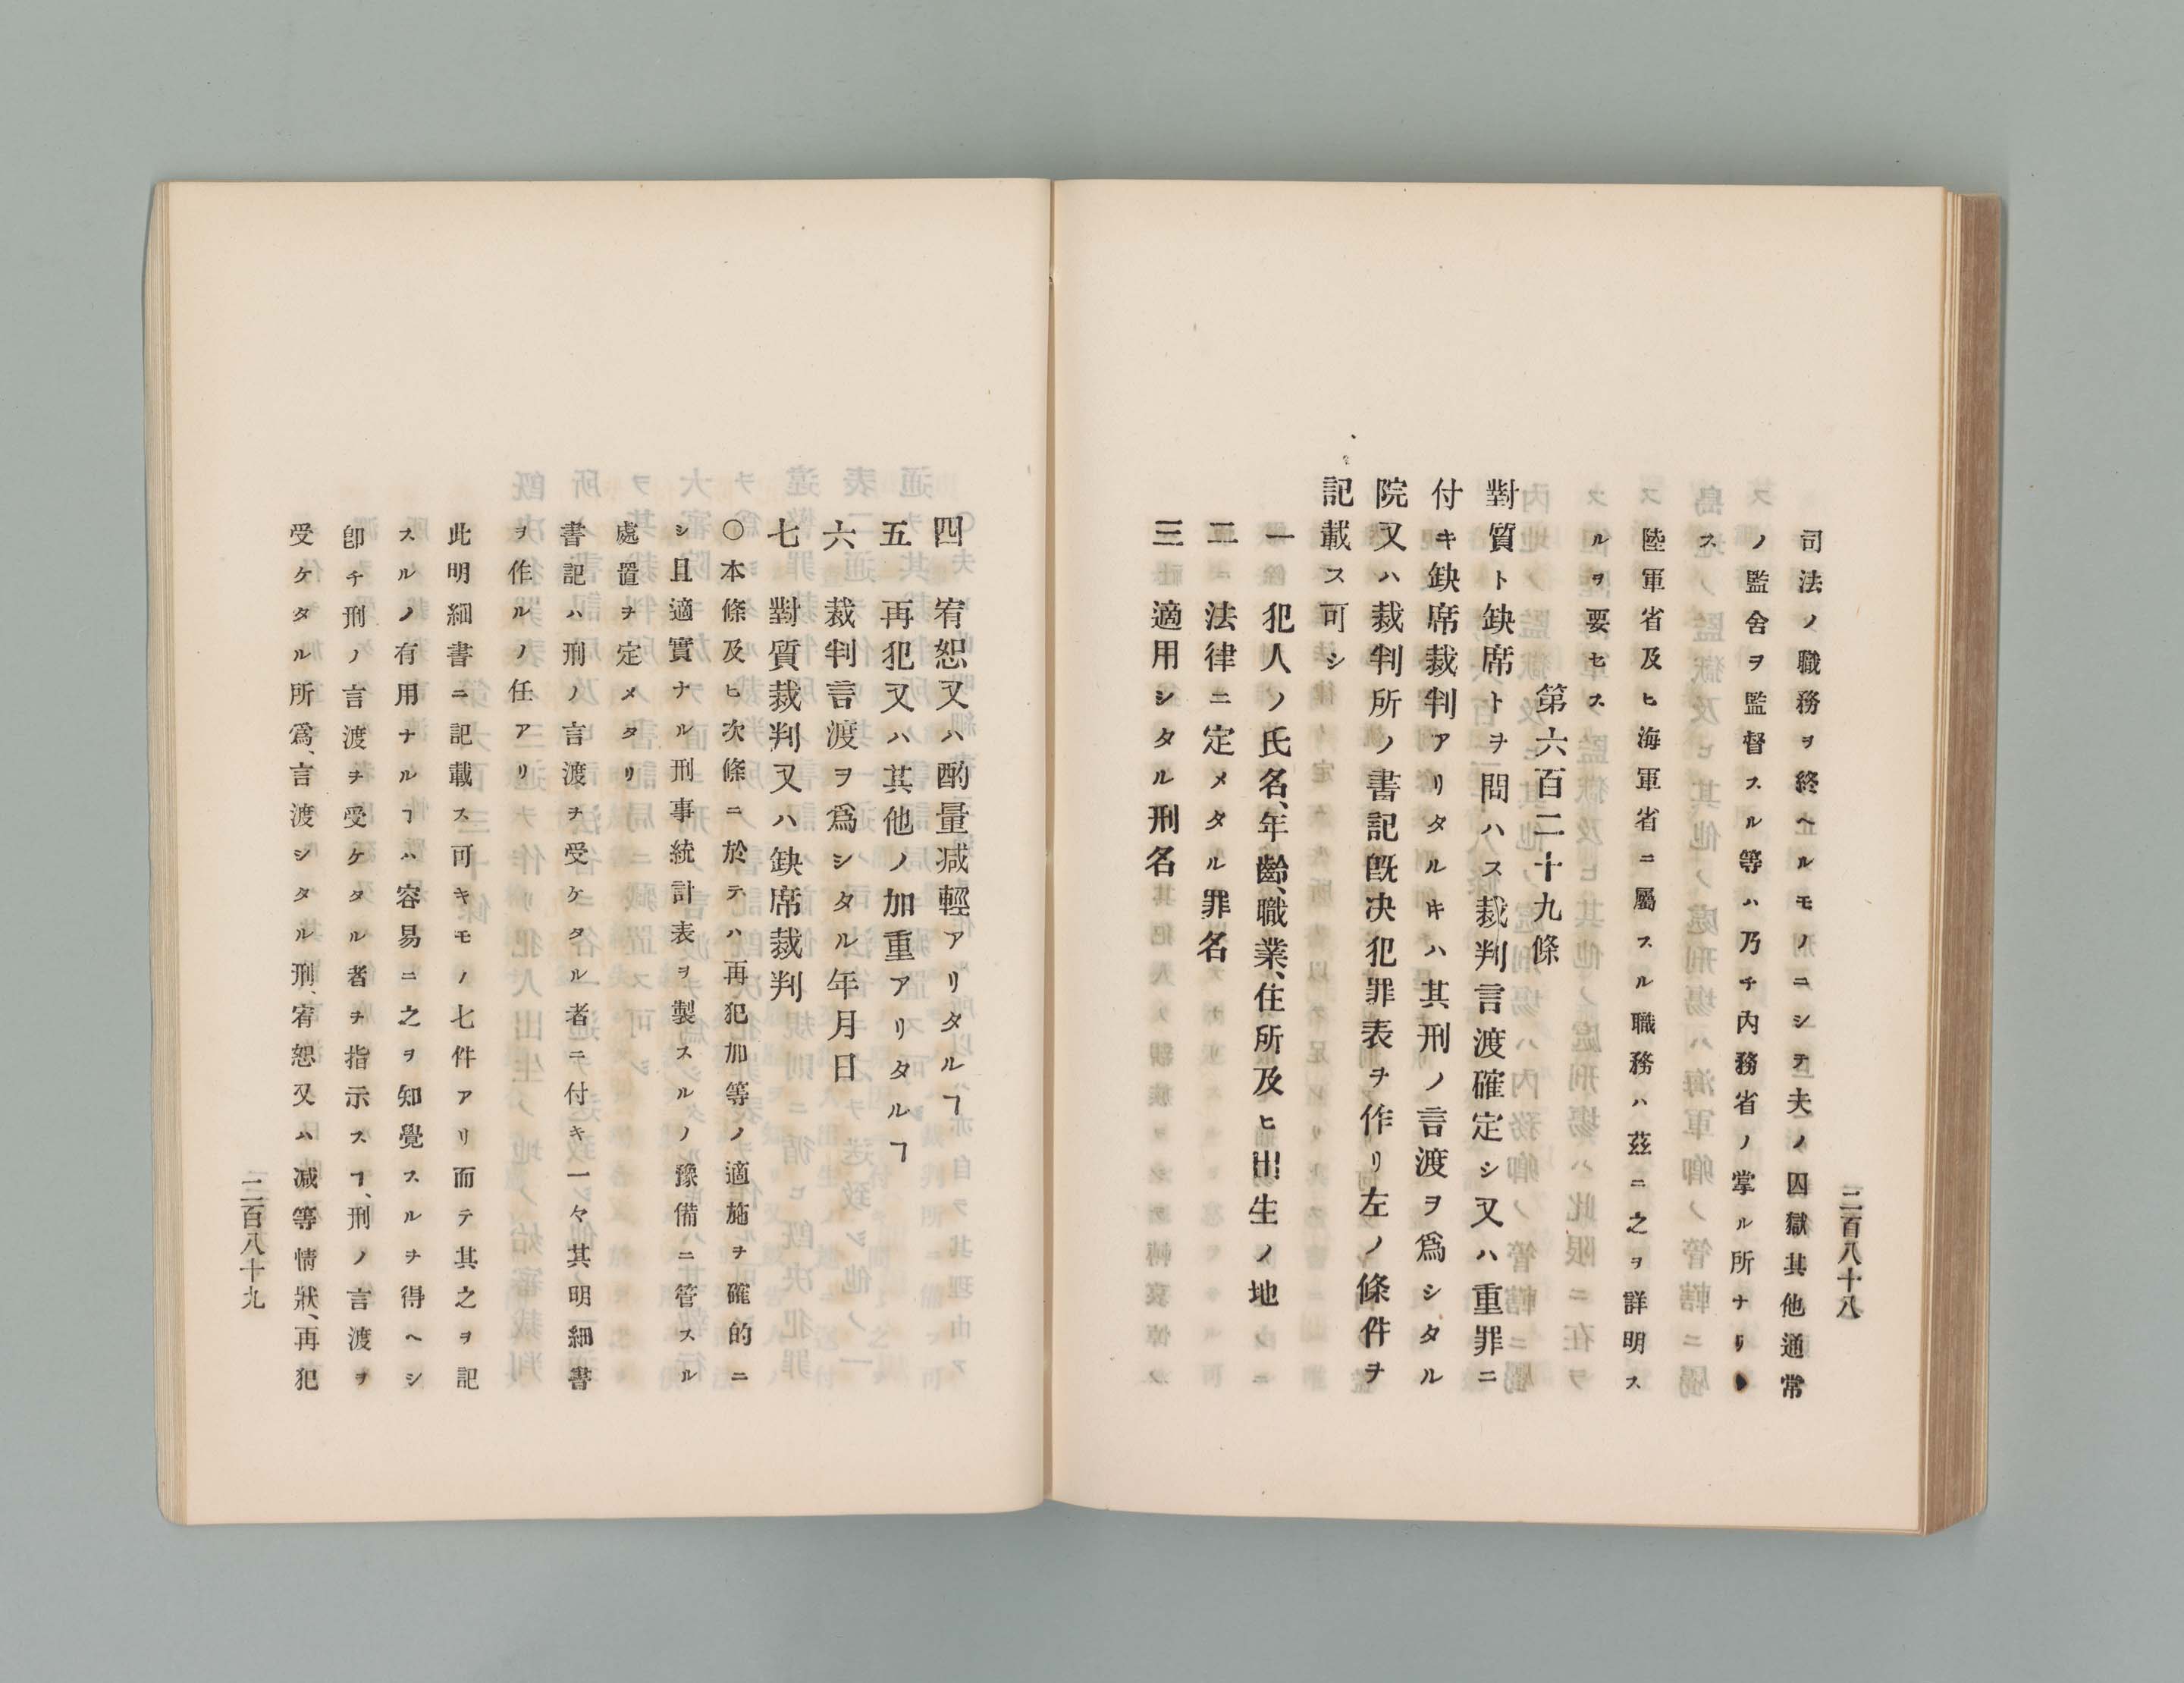 二百八十八
司法ノ職務ヲ終ヘルモノニシテ夫ノ囚獄其他通常
ノ監舍ヲ監督スル等ハ乃チ內務省ノ掌ル所ナリ
ス
陸軍省及ヒ海軍省ニ屬スル職務ハ茲ニ之ヲ詳明ス
ルヲ要セス
第六百二十九條
對質ト缺席トヲ問ハス裁判言渡確定シ又ハ重罪ニ
付キ缺席裁判アリタルキハ其刑ノ言渡ヲ爲シタル
院又ハ裁判所ノ書記旣決犯罪表ヲ作リ左ノ條件ヲ
記載ス可シ
一 犯人ノ氏名、年齡、職業、住所及ヒ出生ノ地
二 法律ニ定メタル罪名
三 適用シタル刑名
四 宥恕又ハ酌量減輕アリタルヿ
五 再犯又ハ其他ノ加重アリタルヿ
六 裁判言渡ヲ爲シタル年月日
七 對質裁判又ハ缺席裁判
〇本條及ヒ次條ニ於テハ再犯加等ノ適施ヲ確的ニ
シ且適實ナル刑事統計表ヲ製スルノ豫備ニ管スル
處置ヲ定メタリ
書記ハ刑ノ言渡ヲ受ケタル者ニ付キ一々其明細書
ヲ作ルノ任アリ
此明細書ニ記載ス可キモノ七件アリ而テ其之ヲ記
スルノ有用ナルヿハ容易ニ之ヲ知覺スルヲ得ヘシ
卽チ刑ノ言渡ヲ受ケタル者ヲ指示スヿ、刑ノ言渡ヲ
受ケタル所爲、言渡シタル刑、宥恕又ハ減等情狀、再犯
二百八十九